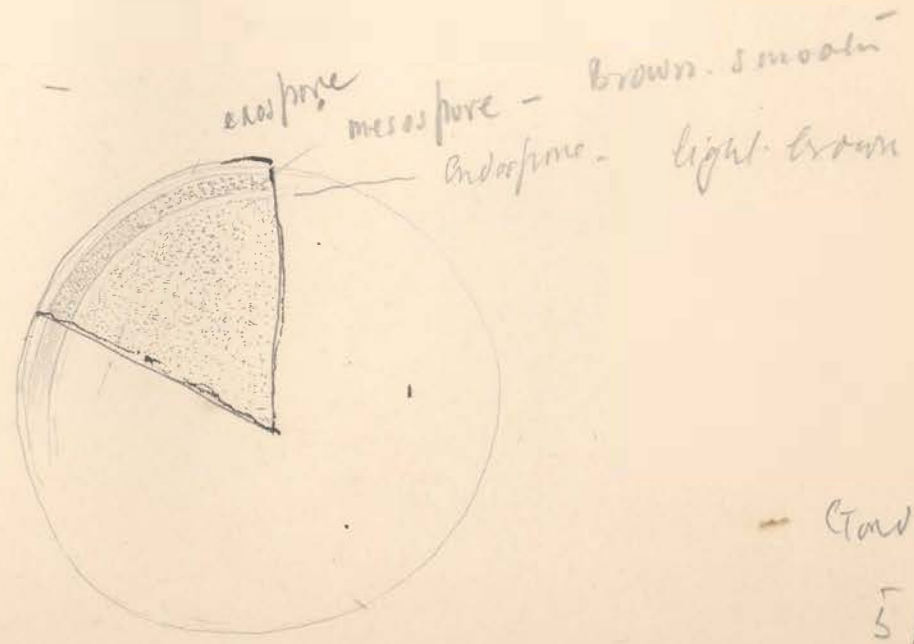 exospore
mesospore - Brown. smooth
Endospore. light. brown
5